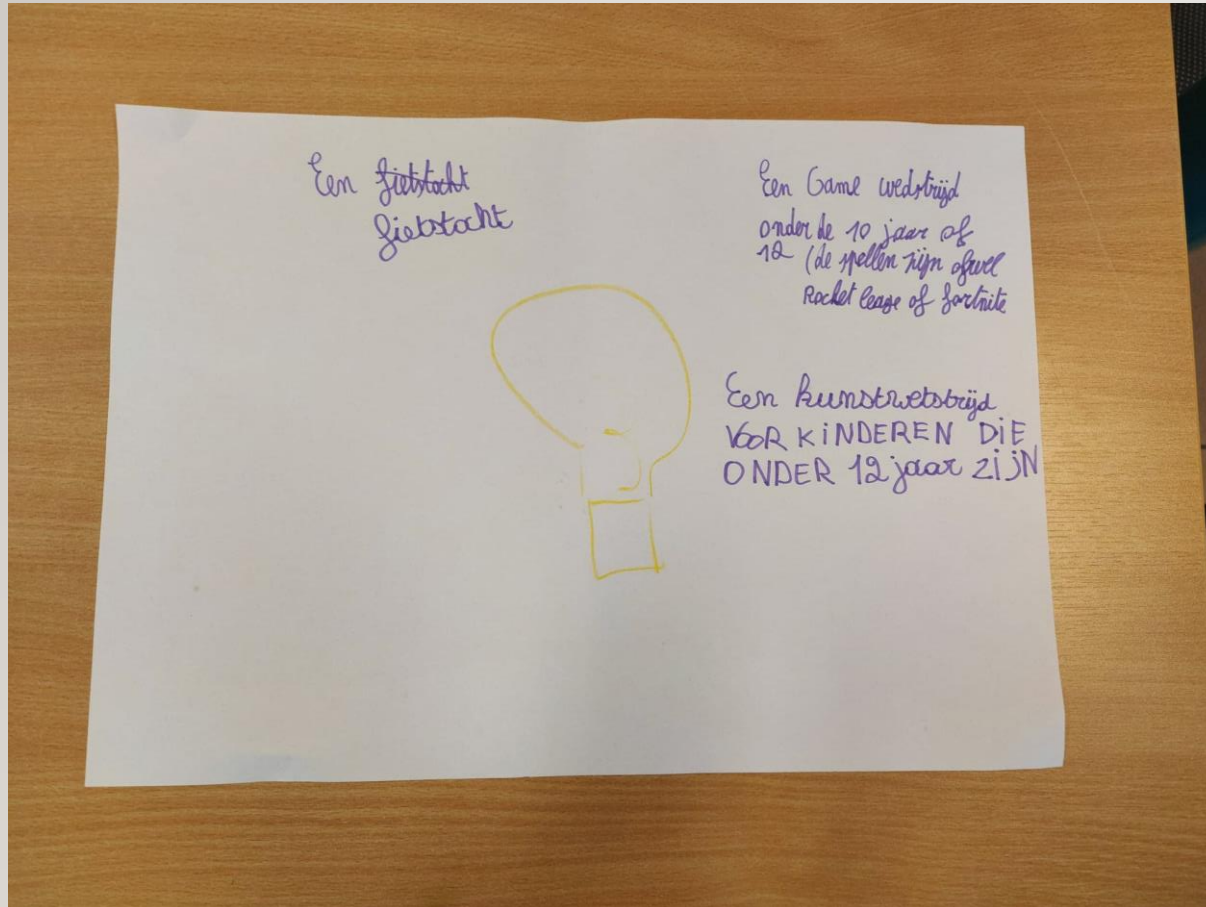 Een fietstocht
fietstocht
Een Game wedstrijd
onder de 10 jaar of
12 (de spellen zijn ofwel
Rocket leage of fortnite
Een kunstwetstrijd
VOOR KINDEREN DIE
ONDER 12 jaar ZIJN